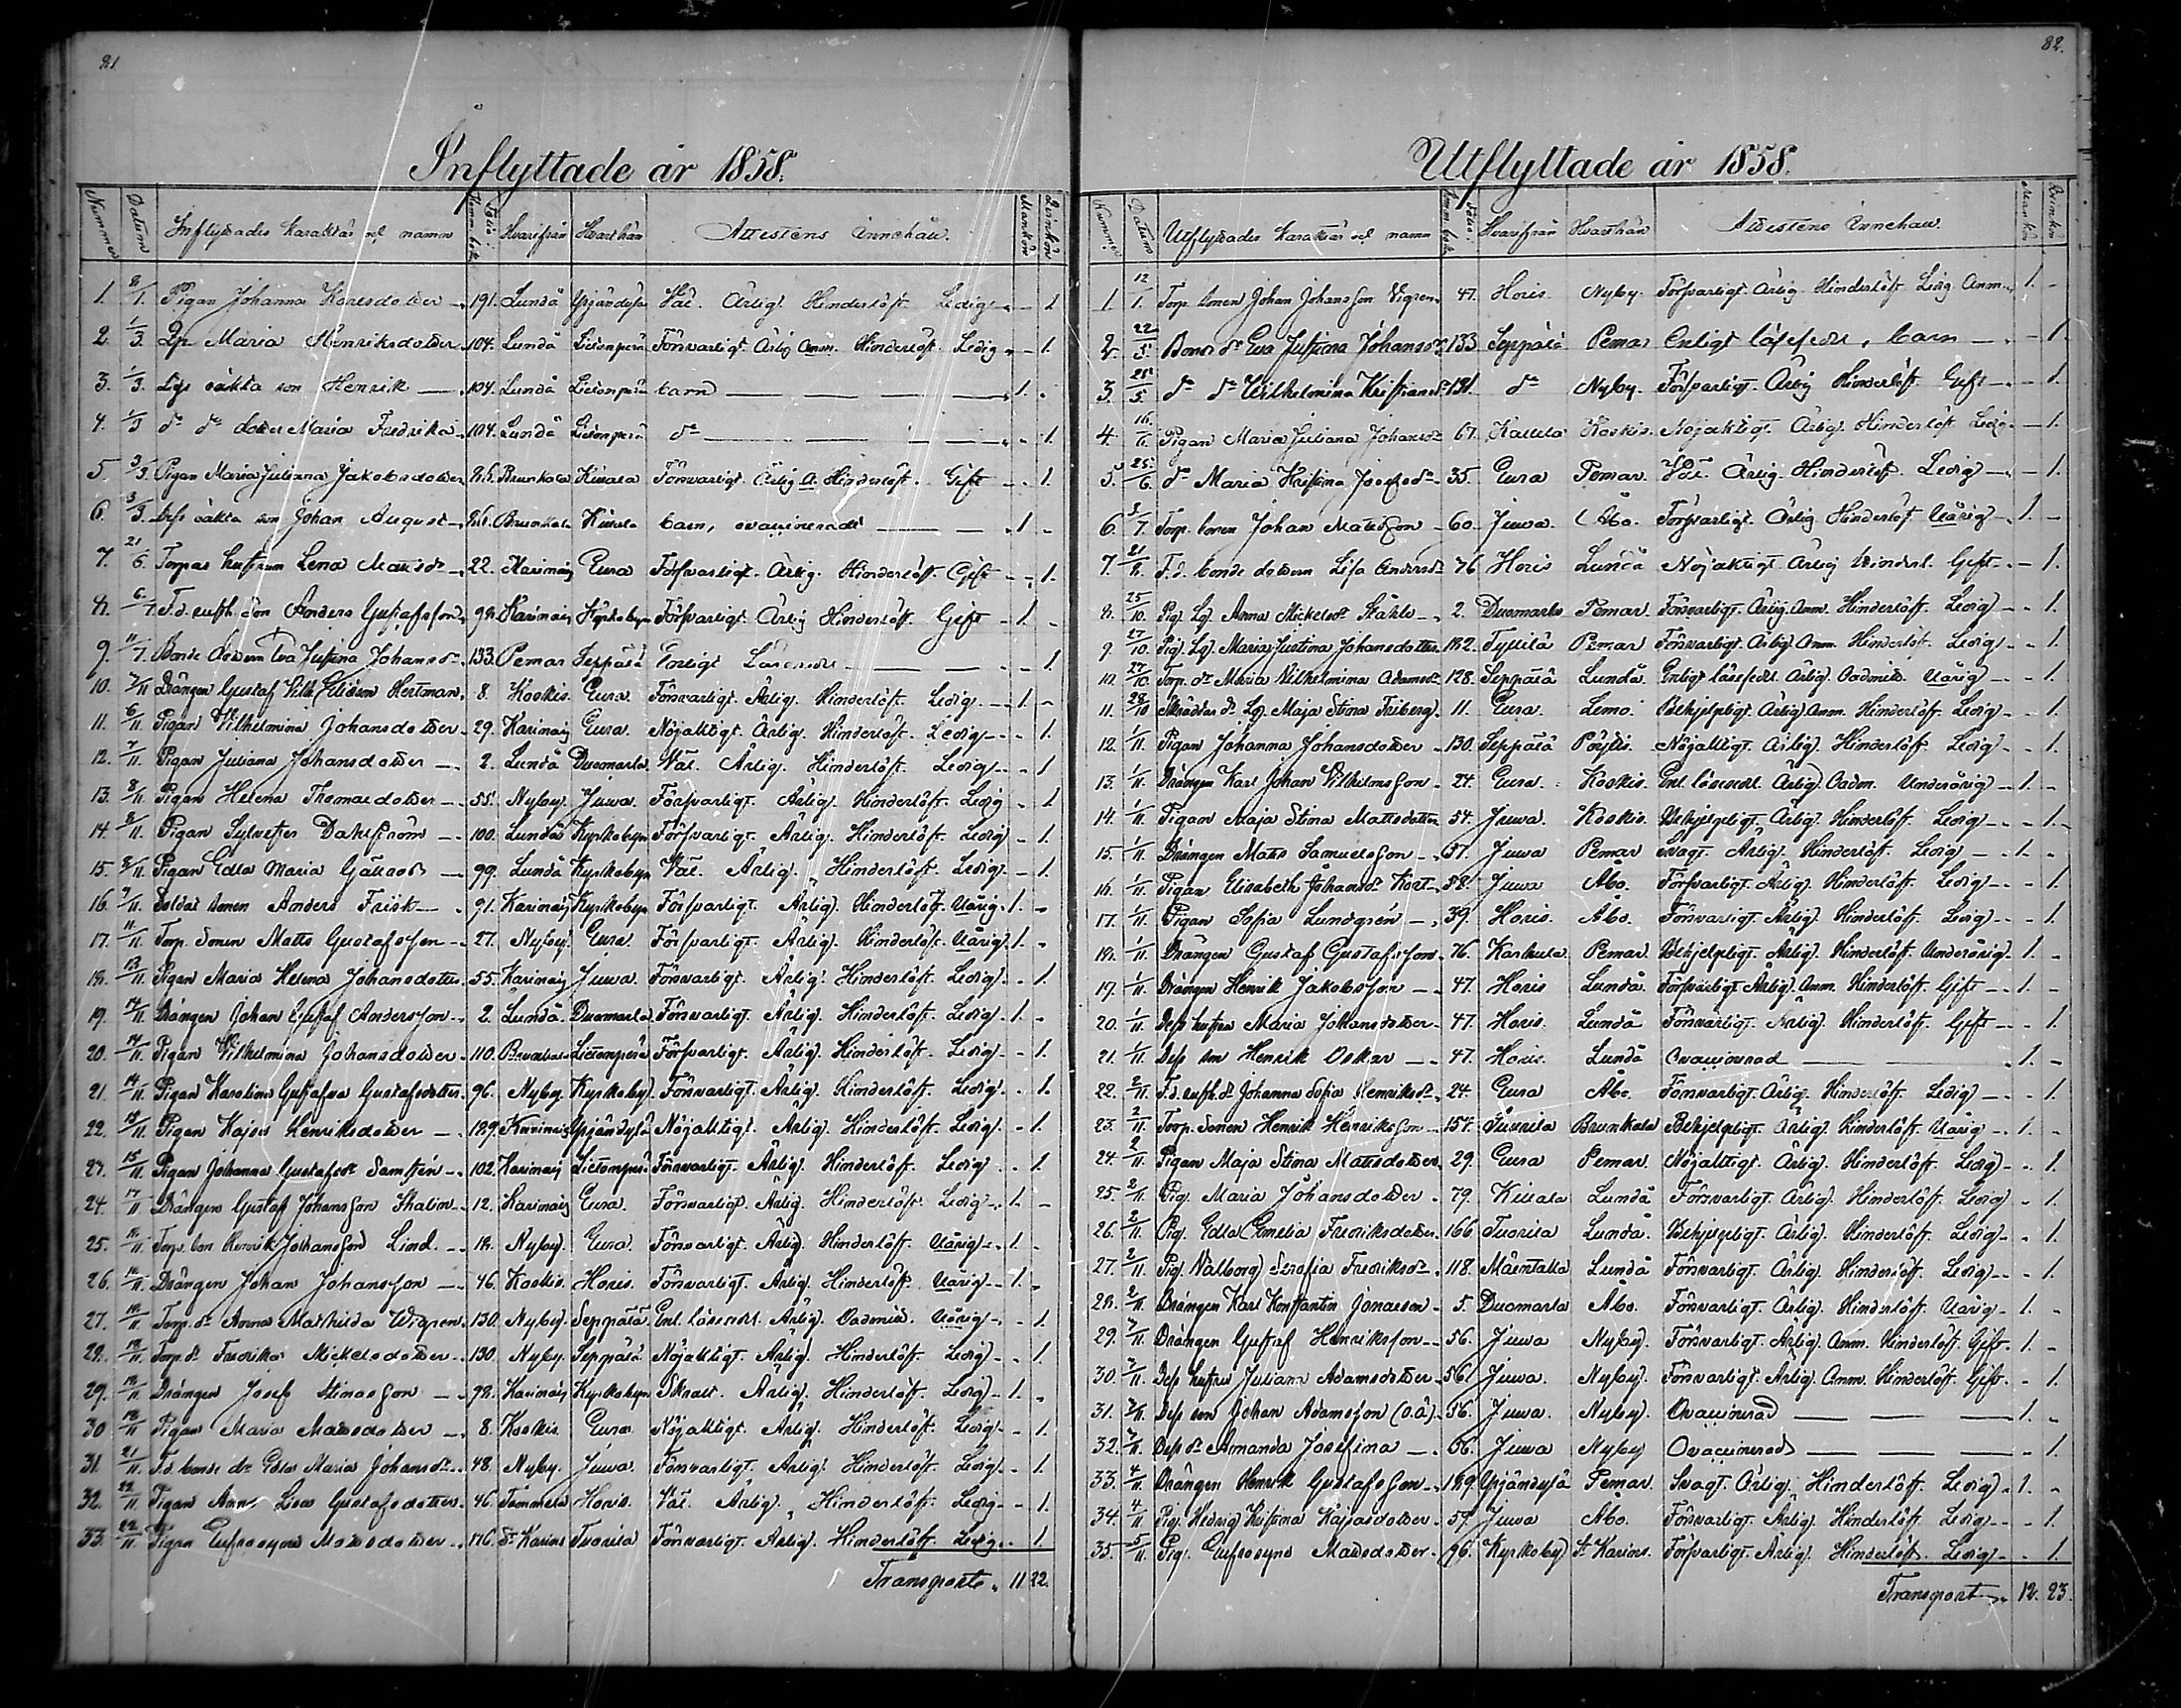 81
Inflyttade år 1858.
Nummer Datum Inflyttades karaktär och namn Hvarifrån Hvarthän Attestens innehåll. Mankön Qvinkön
1. 8/1. Pigan Johanna Karlsdotter 191. Lundå Yrjändylä Väl. Ärlig. Hinderlöst. Ledig - 1
2. 1/3. Lgs Maria Henriksdotter 104. Lundå Lietompää Försvarligt. Ärlig Anm. Hinderlöst. Ledig - 1.
3. 1/3. Lgs oäkta son Henrik 104. Lundå Lietompää barn 1. -
4. 1/3 do do dotter Maria Fredrika 104. Lundå Lietompää do - 1.
5. 3/3. Pigan Maria Juliana Jakobsdotter 86. Brunkala Kiuala Försvarligt. Ärlig A. Hinderlöst. Gift - 1.
6. 3/3. dess oäkta son Johan August 86. Brunkala Kiuala barn, ovaccineradt 1 -
7. 21/6. Torpar hustrun Lena Matsdr 22. Karinais Eura Försvarligt. Ärlig. Hinderlöst. Gift - 1.
8. 6/7. F.d. rusth. son Anders Gustafsson 98. Karinais Kyrkobyn Försvarligt Ärlig Hinderlöst. Gift 1. -
9. 11/7. Bonde dottern Eva Justina Johansdr 133. Pemar Seppälä Enligt Läsesedel - 1
10. 2/11 Drängen Gustaf Vilh. Elisson Hertman 8. Koskis. Eura. Försvarligt. Ärlig. Hinderlöst. Ledig 1. -
11. 6/11. Pigan Vilhelmina Johansdotter 29. Karinais Eura. Nöjaktigt. Ärlig. Hinderlöst. Ledig - 1
12. 7/11. Pigan Juliana Johansdotter 2. Lundå Duomarla. Väl. Ärlig. Hinderlöst. Ledig - 1
13. 8/11. Pigan Helena Thomasdotter 55. Nyby. Juwa. Försvarligt. Ärlig. Hinderlöst. Ledig - 1
14. 8/11. Pigan Sylvester Dahlström 100. Lundå Kyrkobyn Försvarligt. Ärlig. Hinderlöst. Ledig - 1.
15. 8/11. Pigan Edla Maria 99. Lundå Kyrkobyn Väl. Ärlig. Hinderlöst. Ledig - 1.
16. 9/11. Soldat sonen Anders Frisk 91. Karinais Kyrkobyn Försvarligt. Ärlig. Hinderlöst. Uårig 1. -
17. 11/11. Torp. Sonen Matts Gustafsson 27. Nyby. Eura. Försvarligt. Ärlig. Hinderlöst. Uårig 1. -
18. 13/11. Pigan Maria Helena Johansdotter 55. Karinais Juwa. Försvarligt. Ärlig. Hinderlöst. Ledig - 1.
19. 14/11. Drängen Johan Gustaf Andersson 2. Lundå. Duomarla Försvarligt. Ärlig. Hinderlöst. Ledig 1. -
20. 14/11. Pigan Vilhelmina Johansdotter 110. Brunkala Lietompää Försvarligt. Ärlig. Hinderlöst. Ledig - 1.
21. 14/11. Pigan Karolina Gustafva Gustafsdotter 96. Nyby. Kyrkoby. Försvarligt. Ärlig. Hinderlöst. Ledig - 1.
22. 15/11. Pigan Kajsa Henriksdotter 189. Karinais Yrjändylä Nöjaktigt. Ärlig. Hinderlöst. Ledig - 1.
23. 15/11. Pigan Johanna Gustafsdr 102. Karinais Lietompää Försvarligt. Ärlig. Hinderlöst. Ledig - 1.
24. 17/11. Drängen Gustaf Johansson Stalin 12. Karinais Eura. Försvarligt. Ärlig. Hinderlöst. Ledig 1. -
25. 18/11. Torp. son Henrik Johansson Lind. 18. Nyby. Eura. Försvarligt. Ärlig. Hinderlöst. Uårig 1. -
26. 18/11. Drängen Johan Johansson 46. Koskis. Horis. Försvarligt. Ärlig. Hinderlöst. Uårig 1. -
27. 18/11. Torp. dr Anna Mathilda Wigren 130. Nyby. Seppälä. Enl. läsesedl. Ärlig. Oadmitt. Uårig - 1.
28. 18/11. Torp. dr Fredrika Mickelsdotter 130. Nyby. Seppälä Nöjaktigt. Ärlig. Hinderlöst. Ledig - 1.
29. 18/11. Drängen Josef Simasson 98. Karinais Kyrkobyn Skralt. Ärlig. Hinderlöst. Ledig 1. -
30 18/11 Pigan Maria Matsdotter 8. Koskis. Eura. Nöjaktigt. Ärlig. Hinderlöst. Ledig - 1.
31. 21/11. F.d. bonde dr Edla Maria Johansdr 48. Nyby. Juwa. Försvarligt. Ärlig. Hinderlöst. Ledig - 1.
32. 22/11. Pigan Anna Lisa Gustafsdotter 46. Tammela Horis. Väl. Ärlig. Hinderlöst. Ledig - 1.
33. 22/11. Pigan Eufrosyne Matsdotter 176. St Karins Tuorila Försvarligt. Ärlig. Hinderlöst. Ledig 1.
Transport. 11 22.
82.
Utflyttade år 1858.
Nummer Datum Utflyttades karaktär och namn Hvarifrån Hvarthän Attestens innehåll. Mankön Qvinkön
1. 12/1. Torp. sonen Johan Johansson Vigren 47. Horis. Nyby. Försvarligt. Ärlig. Hinderlöst. Ledig. Anm. 1. -
2. 22/5. Bonde dr Eva Justina Johansdr 133 Seppälä Pemar Enligt läsesedel, barn - 1.
3. 25/5. do do Wilhelmina Kristiansdr 131. do Nyby. Försvarligt. Ärlig Hinderlöst. Gift - 1.
4. 16/6. Pigan Maria Juliana Johansdr 67. Kallela Koskis. Nöjaktigt. Ärlig. Hinderlöst. Ledig - 1.
5. 25/6. do Maria Kristina Josefsdr 35. Eura Pemar. Väl. Ärlig. Hinderlöst. Ledig - 1.
6. 3/7. Torp. sonen Johan Mattsson 60. Juwa. Åbo. Försvarligt. Ärlig. Hinderlöst. Uårig 1. -
7. 21/8. F.d. bonde dottern Lisa Andersdr 76 Horis Lundå Nöjaktigt. Ärlig Hinderl. Gift - 1.
8. 25/10. Pig. Lg. Anna Mickelsdr Ståhle 2. Duomarla Pemar. Försvarligt. Ärlig. Anm. Hinderlöst. Ledig - 1.
9. 27/10. Pig. Lg. Maria Justina Johansdotter 182. Tyllilä Pemar Försvarligt. Ärlig. Anm. Hinderlöst. Ledig - 1.
10. 27/10. Torp. dr Maria Vilhelmina Adamsdr 128. Seppälä Lundå. Enligt läsesedl. Ärlig. Oadmitt. Uårig - 1.
11. 28/10 Skräddar dr Lg. Maja Stina Friberg 11. Eura. Lemo. Behjelpligt. Ärlig. Anm. Hinderlöst. Ledig - 1.
12. 1/11. Pigan Johanna Johansdotter 130. Seppälä Pöytis. Nöjaktigt. Ärlig. Hinderlöst. Ledig - 1.
13. 1/11. Drängen Karl Johan Vilhelmsson 24. Eura. Koskis. Enl. läsesedl. Ärlig. Oadm. Underårig 1. -
14. 1/11. Pigan Maja Stina Mattsdotter 54. Juwa. Koskis. Behjelpligt. Ärlig. Hinderlöst. Ledig - 1.
15. 1/11. Drängen Matts Samuelsson 57. Juwa Pemar Svagt. Ärlig. Hinderlöst. Ledig 1. -
16. 1/11. Pigan Elisabeth Johansdr Kort 58. Juwa Åbo. Försvarligt. Ärlig. Hinderlöst. Ledig - 1.
17. 1/11. Pigan Sofia Lundgrén 39. Horis. Åbo. Försvarligt. Ärlig. Hinderlöst. Ledig - 1.
18. 1/11. Drängen Gustaf Gustafsson 76. Karhula Pemar. Behjelpligt. Ärlig. Hinderlöst. Underårig 1. -
19. 1/11. Drängen Henrik Jakobsson 47. Horis Lundå. Försvarligt. Ärlig. Anm. Hinderlöst. Gift 1. -
20. 1/11. Dess hustru Maria Johansdotter 47. Horis. Lundå Försvarligt. Ärlig. Hinderlöst. Gift - 1.
21. 1/11. Dess son Henrik Oskar 47. Horis. Lundå Ovaccinerad 1. -
22. 2/11. F.d. rusth. dr Johanna Sofia Henriksdr 24. Eura Åbo. Försvarligt. Ärlig. Hinderlöst. Ledig - 1.
23. 2/11. Torp. Sonen Henrik Henriksson 154. Brunkala Behjelpligt. Ärlig. Hinderlöst. Uårig 1. -
24. 2/11. Pigan Maja Stina Mattsdotter 29. Eura Pemar. Nöjaktigt. Ärlig. Hinderlöst. Ledig - 1.
25. 2/11. Pig. Maria Johansdotter 79. Kiuala Lundå Försvarligt. Ärlig. Hinderlöst. Ledig - 1.
26. 2/11. Pig. Edla Emelia Fredriksdotter 166 Tuorila Lundå. Behjelpligt. Ärlig. Hinderlöst. Ledig - 1.
27. 2/11. Pig. Valborg Serafia Fredriksdr 118. Mäentaka Lundå Försvarligt. Ärlig. Hinderlöst. Ledig - 1.
28. 2/11. Drängen Karl Konstantin Jonasson 5. Duomarla Åbo. Försvarligt. Ärlig. Hinderlöst. Uårig 1. -
29. 3/11. Drängen Gustaf Henriksson 56. Juwa Nyby. Försvarligt. Ärlig. Anm. Hinderlöst. Gift. 1. -
30. 3/11. Dess hustru Juliana Adamsdotter 56. Juwa. Nyby. Försvarligt. Ärlig. Anm. Hinderlöst. Gift. - 1.
31. 3/11. Dess son Johan Adamsson (o.ä) 56. Juwa. Nyby. Ovaccinerad 1. -
32. 3/11. Dess dr Amanda Josefina 56. Juwa Nyby Ovaccinerad - 1.
33. 4/11. Drängen Henrik Gustafsson 189. Yrjändylä Pemar. Svagt. Ärlig. Hinderlöst. Ledig 1. -
34. 4/11 Pig. Hedvig Kristina Kajasdotter 59. Juwa Åbo. Försvarligt. Ärlig. Hinderlöst. Ledig - 1.
35. 5/11. Pig. Eufrosyne Matsdotter 96. Kyrkoby St Karins. Försvarligt. Ärlig. Hinderlöst. Ledig - 1.
Transport 12. 23.